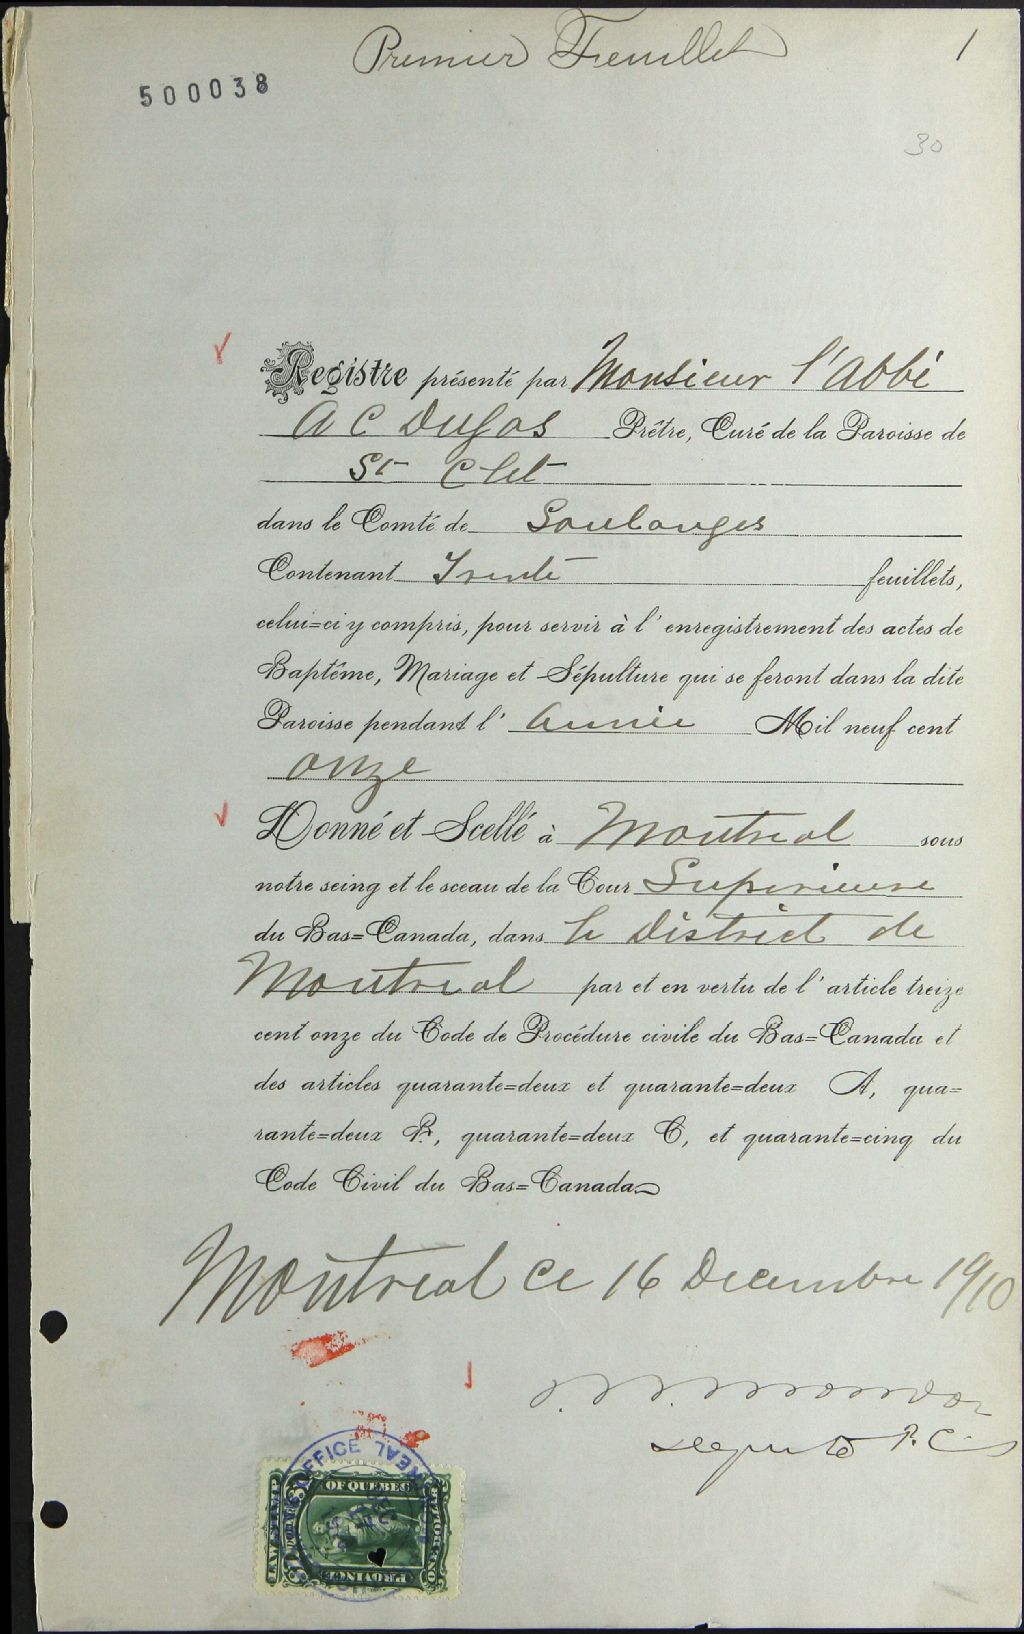 Premier Feuillet
1
500038
30
Registre présenté par Monsieur l'Abbé
A C Dugas Prêtre, Curé de la Paroisse de
St Clet
dans le Comté de Soulanges
Contenant Trente feuillets,
celui=ci y compris, pour servir à l'enregistrement des actes de
Baptême, Mariage et Sépulture qui se feront dans la dite
Paroisse pendant l'année Mil neuf cent
onze
Donné et Scellé à Montreal sous
notre seing et le sceau de la Cour Superieure
du Bas=Canada, dans le District de
Montreal par et en vertu de l'article treize
cent onze du Code de Procédure civile du Bas=Canada et
des articles quarante=deux et quarante=deux A, qua=
rante=deux B, quarante=deux C, et quarante=cinq du
Code Civil du Bas=Canada
Montreal ce 16 Decembre 1910
Deputé P.C.S
OFFICE
OF QUEBEC
LAW STAMP
PROVINCE